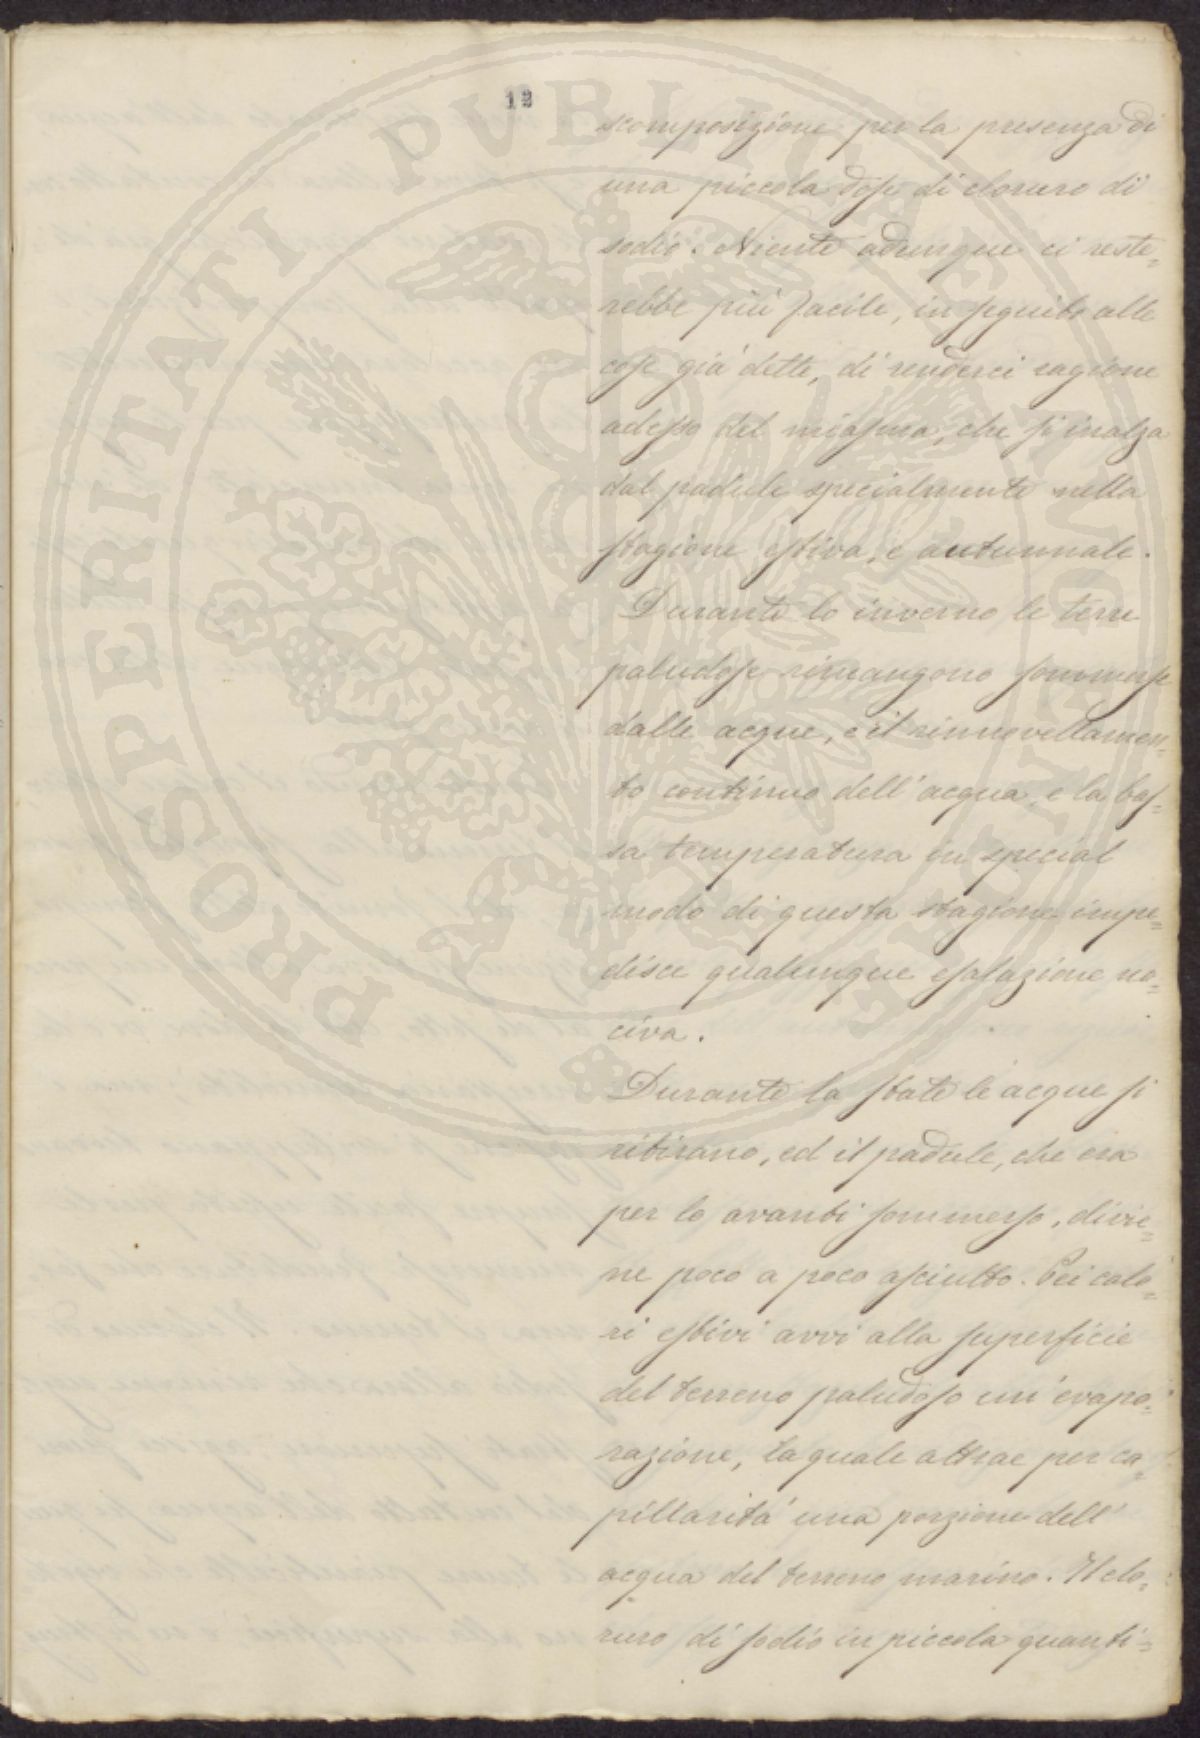 12
scomposizione per la presenza di
una piccola dose di cloruro di
sodio. Niente adunque ci reste=
rebbe più facile, in seguito alle
cose già dette, di renderci ragione
adesso del miasma, che si inalza
dal padule specialmente nella
stagione estiva, e autunnale.
Durante lo inverno le terre
paludose rimangono sommerse
dalle acque, e il rinnovellamen=
to continuo dell'acqua, e la bas=
sa temperatura in special
modo di questa stagione impe=
disce qualunque esalazione no=
civa.
Durante la state le acque si
ritirano, ed il padule, che era
per lo avanti sommerso, divie=
ne poco a poco asciutto. Pei calo=
ri estivi avvi alla superficie
del terreno paludoso un'evapo=
razione, la quale attrae per ca=
pillarità una porzione dell'
acqua del terreno marino. Il clo=
ruro di sodio in piccola quanti=
PROSPERITATI PVBLICAE AVGENDAE